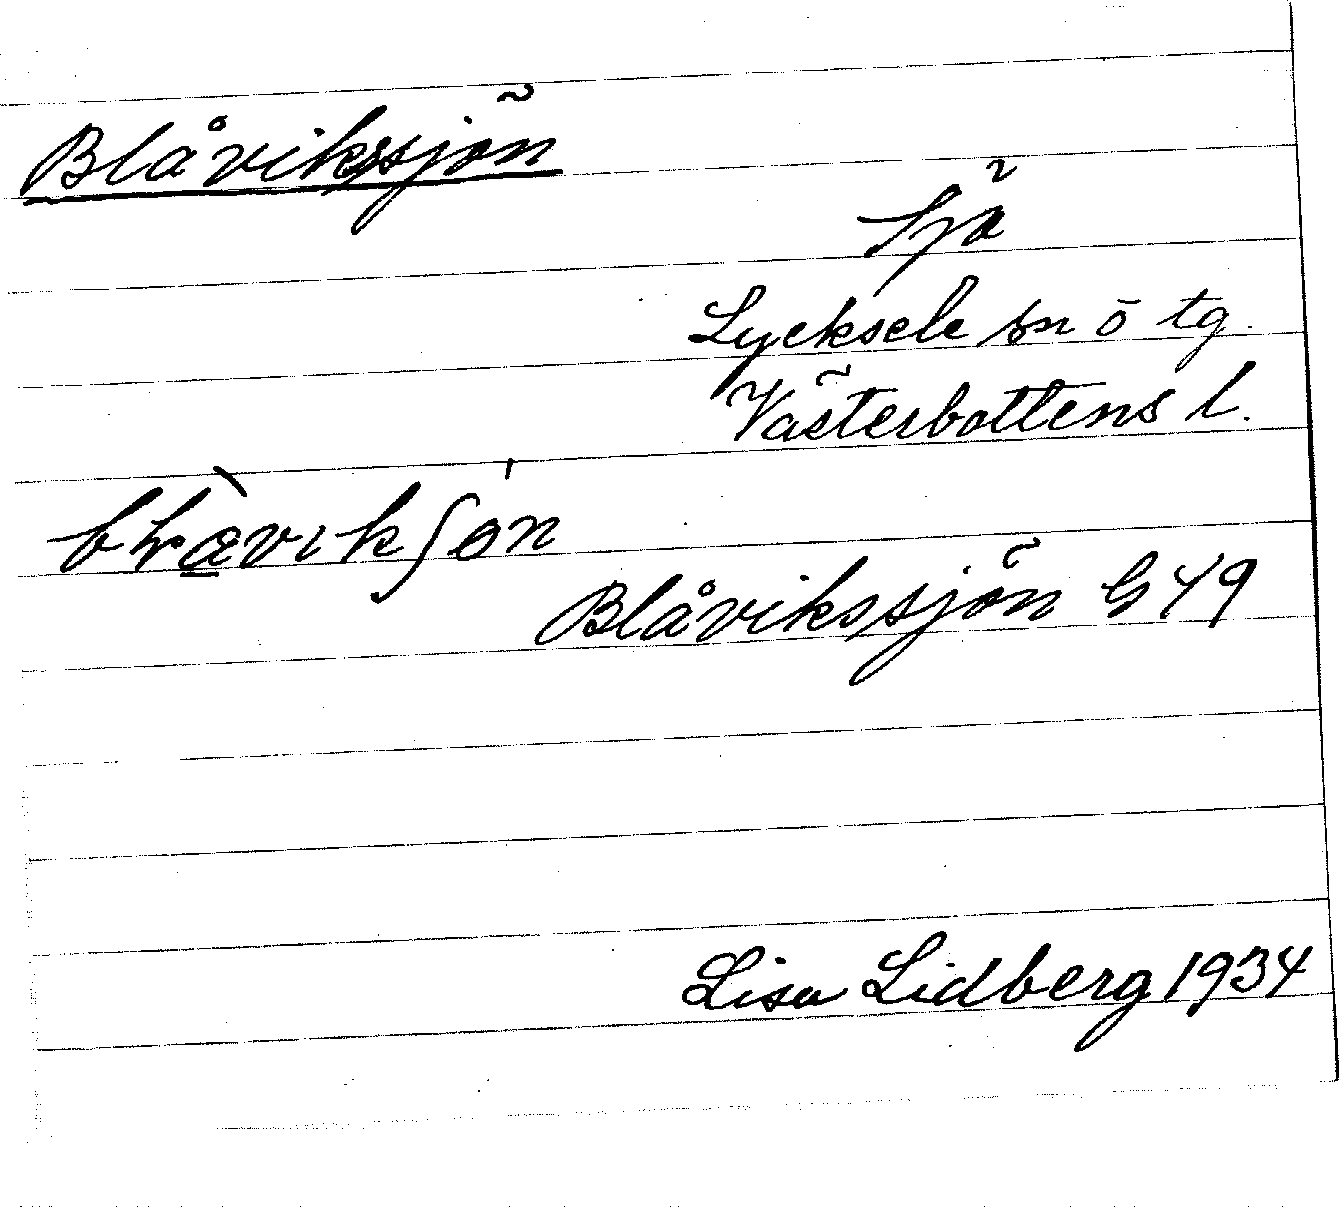 Blåvikssjön
Sjö
Lycksele sn o tg.
Västerbottens l.
Blåvikssjön G 49
Lisa Lidberg 1934